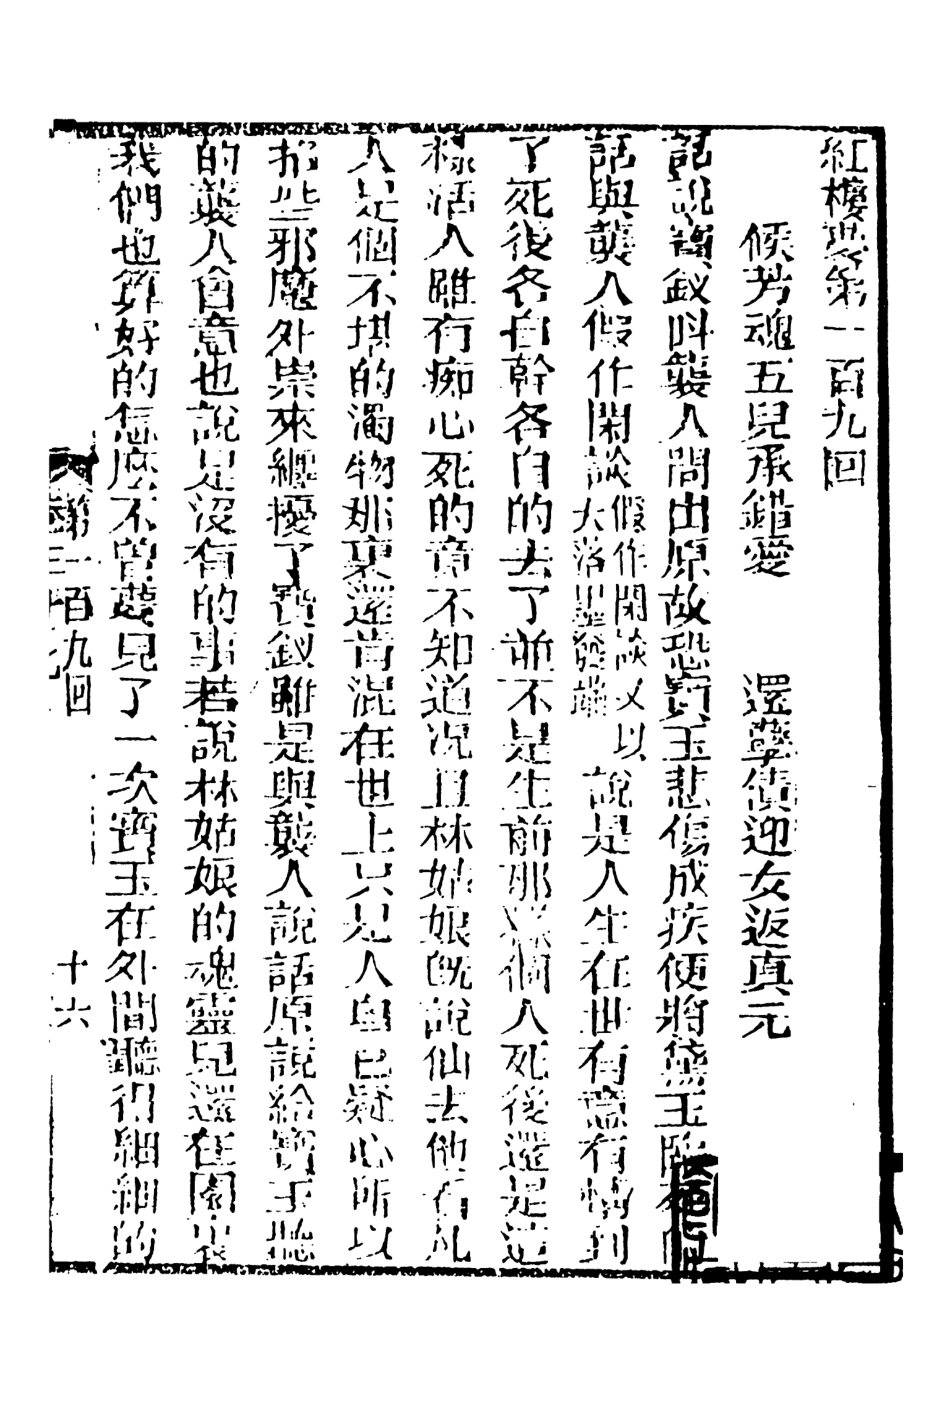 紅樓夢第一百九回
候芳魂五兒承錯愛　還孽債迎女返真元
話說寶釵呌襲人問出原故恐寶玉悲傷成疾便將黛玉臨死的
話與襲人假作閑談假作閑談又以大落墨發端說是人生在世有意有情到
了死後各自幹各自的去了並不是生前那樣個人死後還是這
樣活人雖有痴心死的竟不知道況且林姑娘既說仙去他看凡
人是個不堪的濁物那裏還肯混在世上只是人自己疑心所以
招些邪魔外祟來纏擾了寶釵雖是與襲人說話原說給寶玉聽
的襲人會意也說是沒有的事若說林姑娘的魂靈兒還在園裏
我們也算好的怎麽不曾夢見了一次寶玉在外間聽得細細的
第一百九回
十六